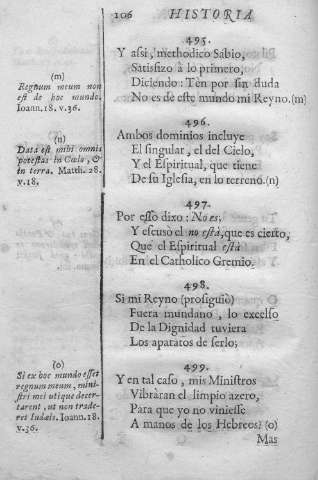 106 HISTORIA
495.
Y assi, methodico Sabio,
Satisfizo à lo primero,
Diciendo: Ten por sin duda
No es de este mundo mi Reyno.(m)
(m)
Regnum meum non
est de hoc mundo.
Ioann.18. v.36.
496.
Ambos dominios incluye
El singular, el del Cielo,
Y el Espiritual, que tiene
De su Iglesia, en lo terreno.(n)
(n)
Data est mihi omnis
potestas in Cœlo, &
in terra. Matth. 28.
v.18.
497.
Por esso dixo: No es,
Y escusò el no està, que es cierto,
Que el Espiritual està
En el Catholico Gremio.
498.
Si mi Reyno (prosiguiò)
Fuera mundano, lo excelso
De la Dignidad tuviera
Los aparatos de serlo;
499.
Y en tal caso, mis Ministros
Vibràran el limpio azero,
Para que yo no viniesse
A manos de los Hebreos? (o)
(o)
Si ex hoc mundo esset
regnum meum, mini-
stri mei utique decer-
tarent, ut non trade-
rer Iudæis. Ioann.18.
v.36.
Mas